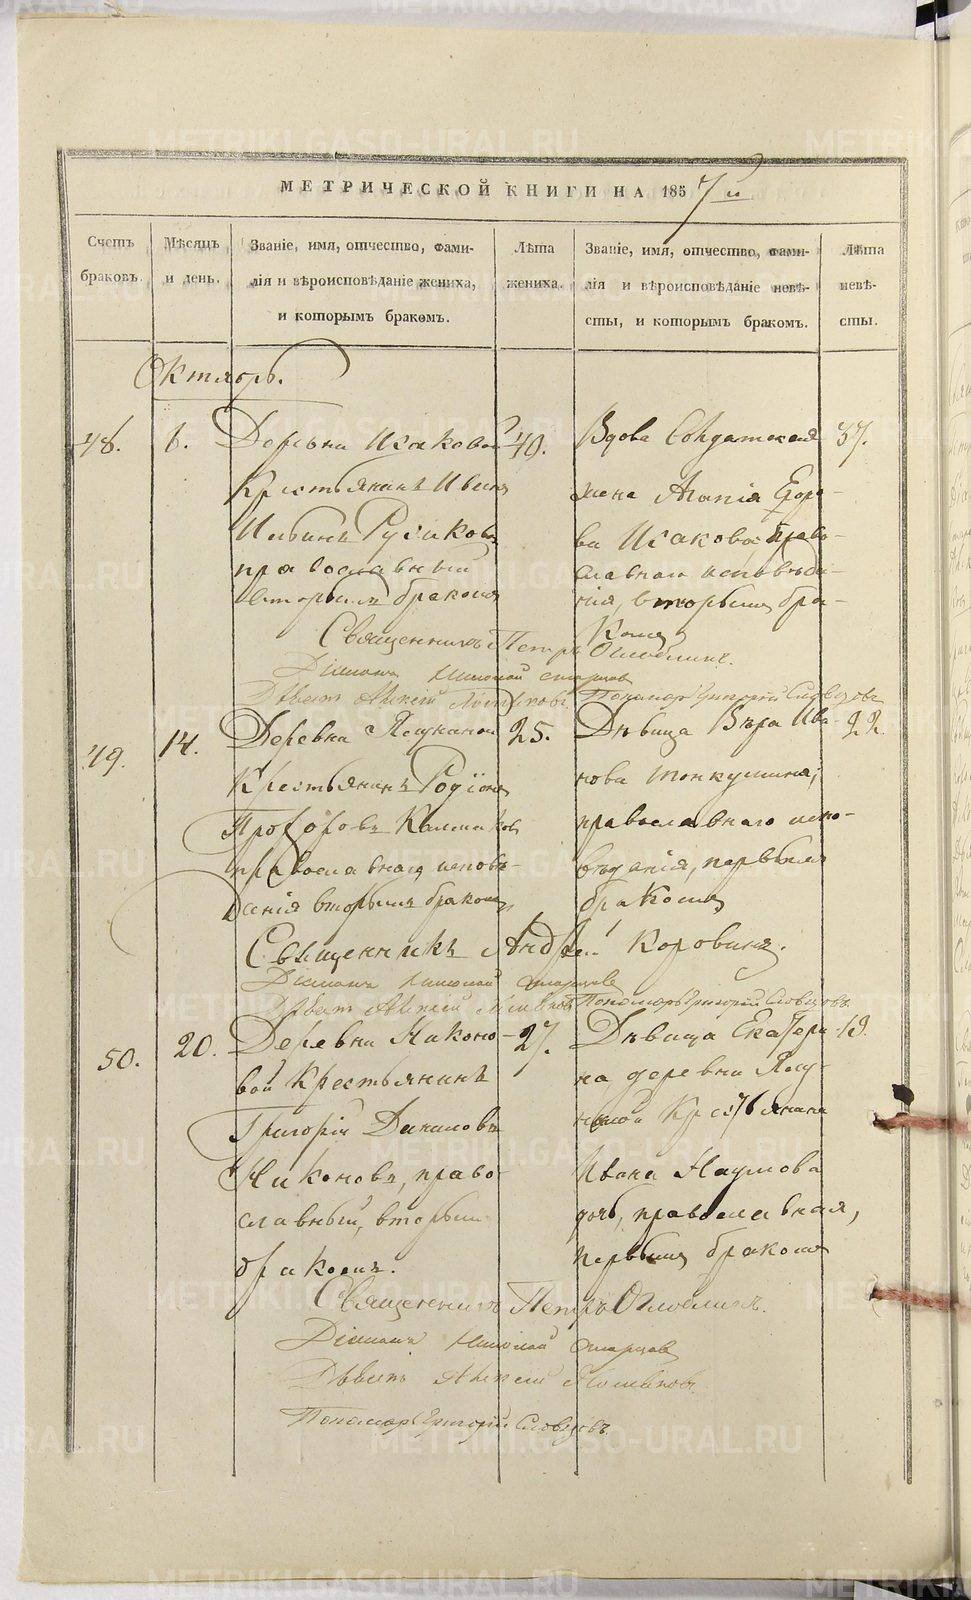 МЕТРИЧЕСКОЙ КНИГИ НА 1857й
Счетъ браковъ.
Мѣсяцъ и день.
Званіе, имя, отчество, фами-
лія и вѣроисповѣданіе жениха,
и которымъ бракомъ.
Лѣта жениха.
Званіе, имя, отчество, фами-
лія и вѣроисповѣданіе невѣ-
сты, и которымъ бракомъ.
Лѣта невѣ-
сты.
Октябрь.
48. 6.
Деревни Исаковой
Крестьянинъ Иванъ
Ильинъ Русаковъ
православный
вторымъ бракомъ
40.
Вдова Солдатская
жена Агапія Егоро-
ва Исакова право-
славнаго исповѣда-
нія, вторымъ бра-
комъ
37.
Священникъ Петръ
Діаконъ Николай Старцов
Дьячекъ Алексей Пономарь Григорій Словцовъ
49. 14.
Деревни
Крестьянинъ Родіонъ
Прохоровъ Калмаковъ
православнаго исповѣ-
данія вторымъ бракомъ
25.
Дѣвица Вѣра Ива-
нова Тонкушина,
православнаго испо-
вѣданія, первымъ
бракомъ
22.
Священникъ Андрей Коровинъ.
Діаконъ Николай Старцов
Дьячекъ Алексей Пономарь Григорій Словцовъ
50. 20.
Деревни Никоно-
вой Крестьянинъ
Григорій Даниловъ
Никоновъ, право-
славный, вторым
бракомъ.
27.
Дѣвица Екатери-
на деревни
Крестьянина
Ивана Наумова
дочь, православная,
первымъ бракомъ
19.
Священникъ Петръ
Діаконъ Николай Старцов
Дьячекъ Алексей
Пономарь Григорій Словцовъ
METRIKI.GASO-URAL.RU